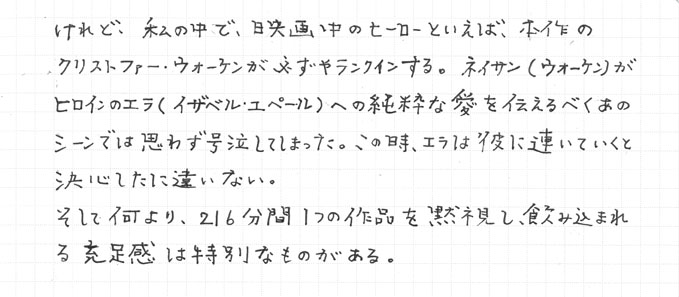 けれど、私の中で、映画い中のヒーローといえば、本作の
クリストファー・ウォーケンが必ずやランクインする。ネイサン(ウォーケン)が
ヒロインのエラ(イザベル・ユペール)への純粋な愛を伝えるべくあの
シーンでは思わず号泣してしまった。この時、エラは彼に連いていくと
決心したに違いない。
そして何より、216分間1つの作品を黙視し、飲み込まれ
る充足感は特別なものがある。